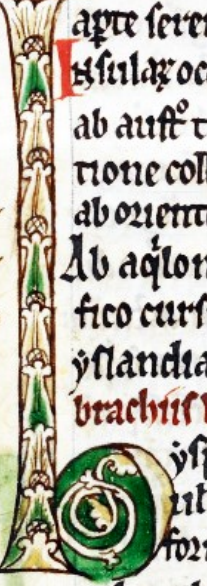 apte seren
Insulaꝝ oc
ab aust᷒ t
tione coll
ab orient
Ab aq̇lon
fico curs
ẏslandia
brachiis
ẏsp
rib
for